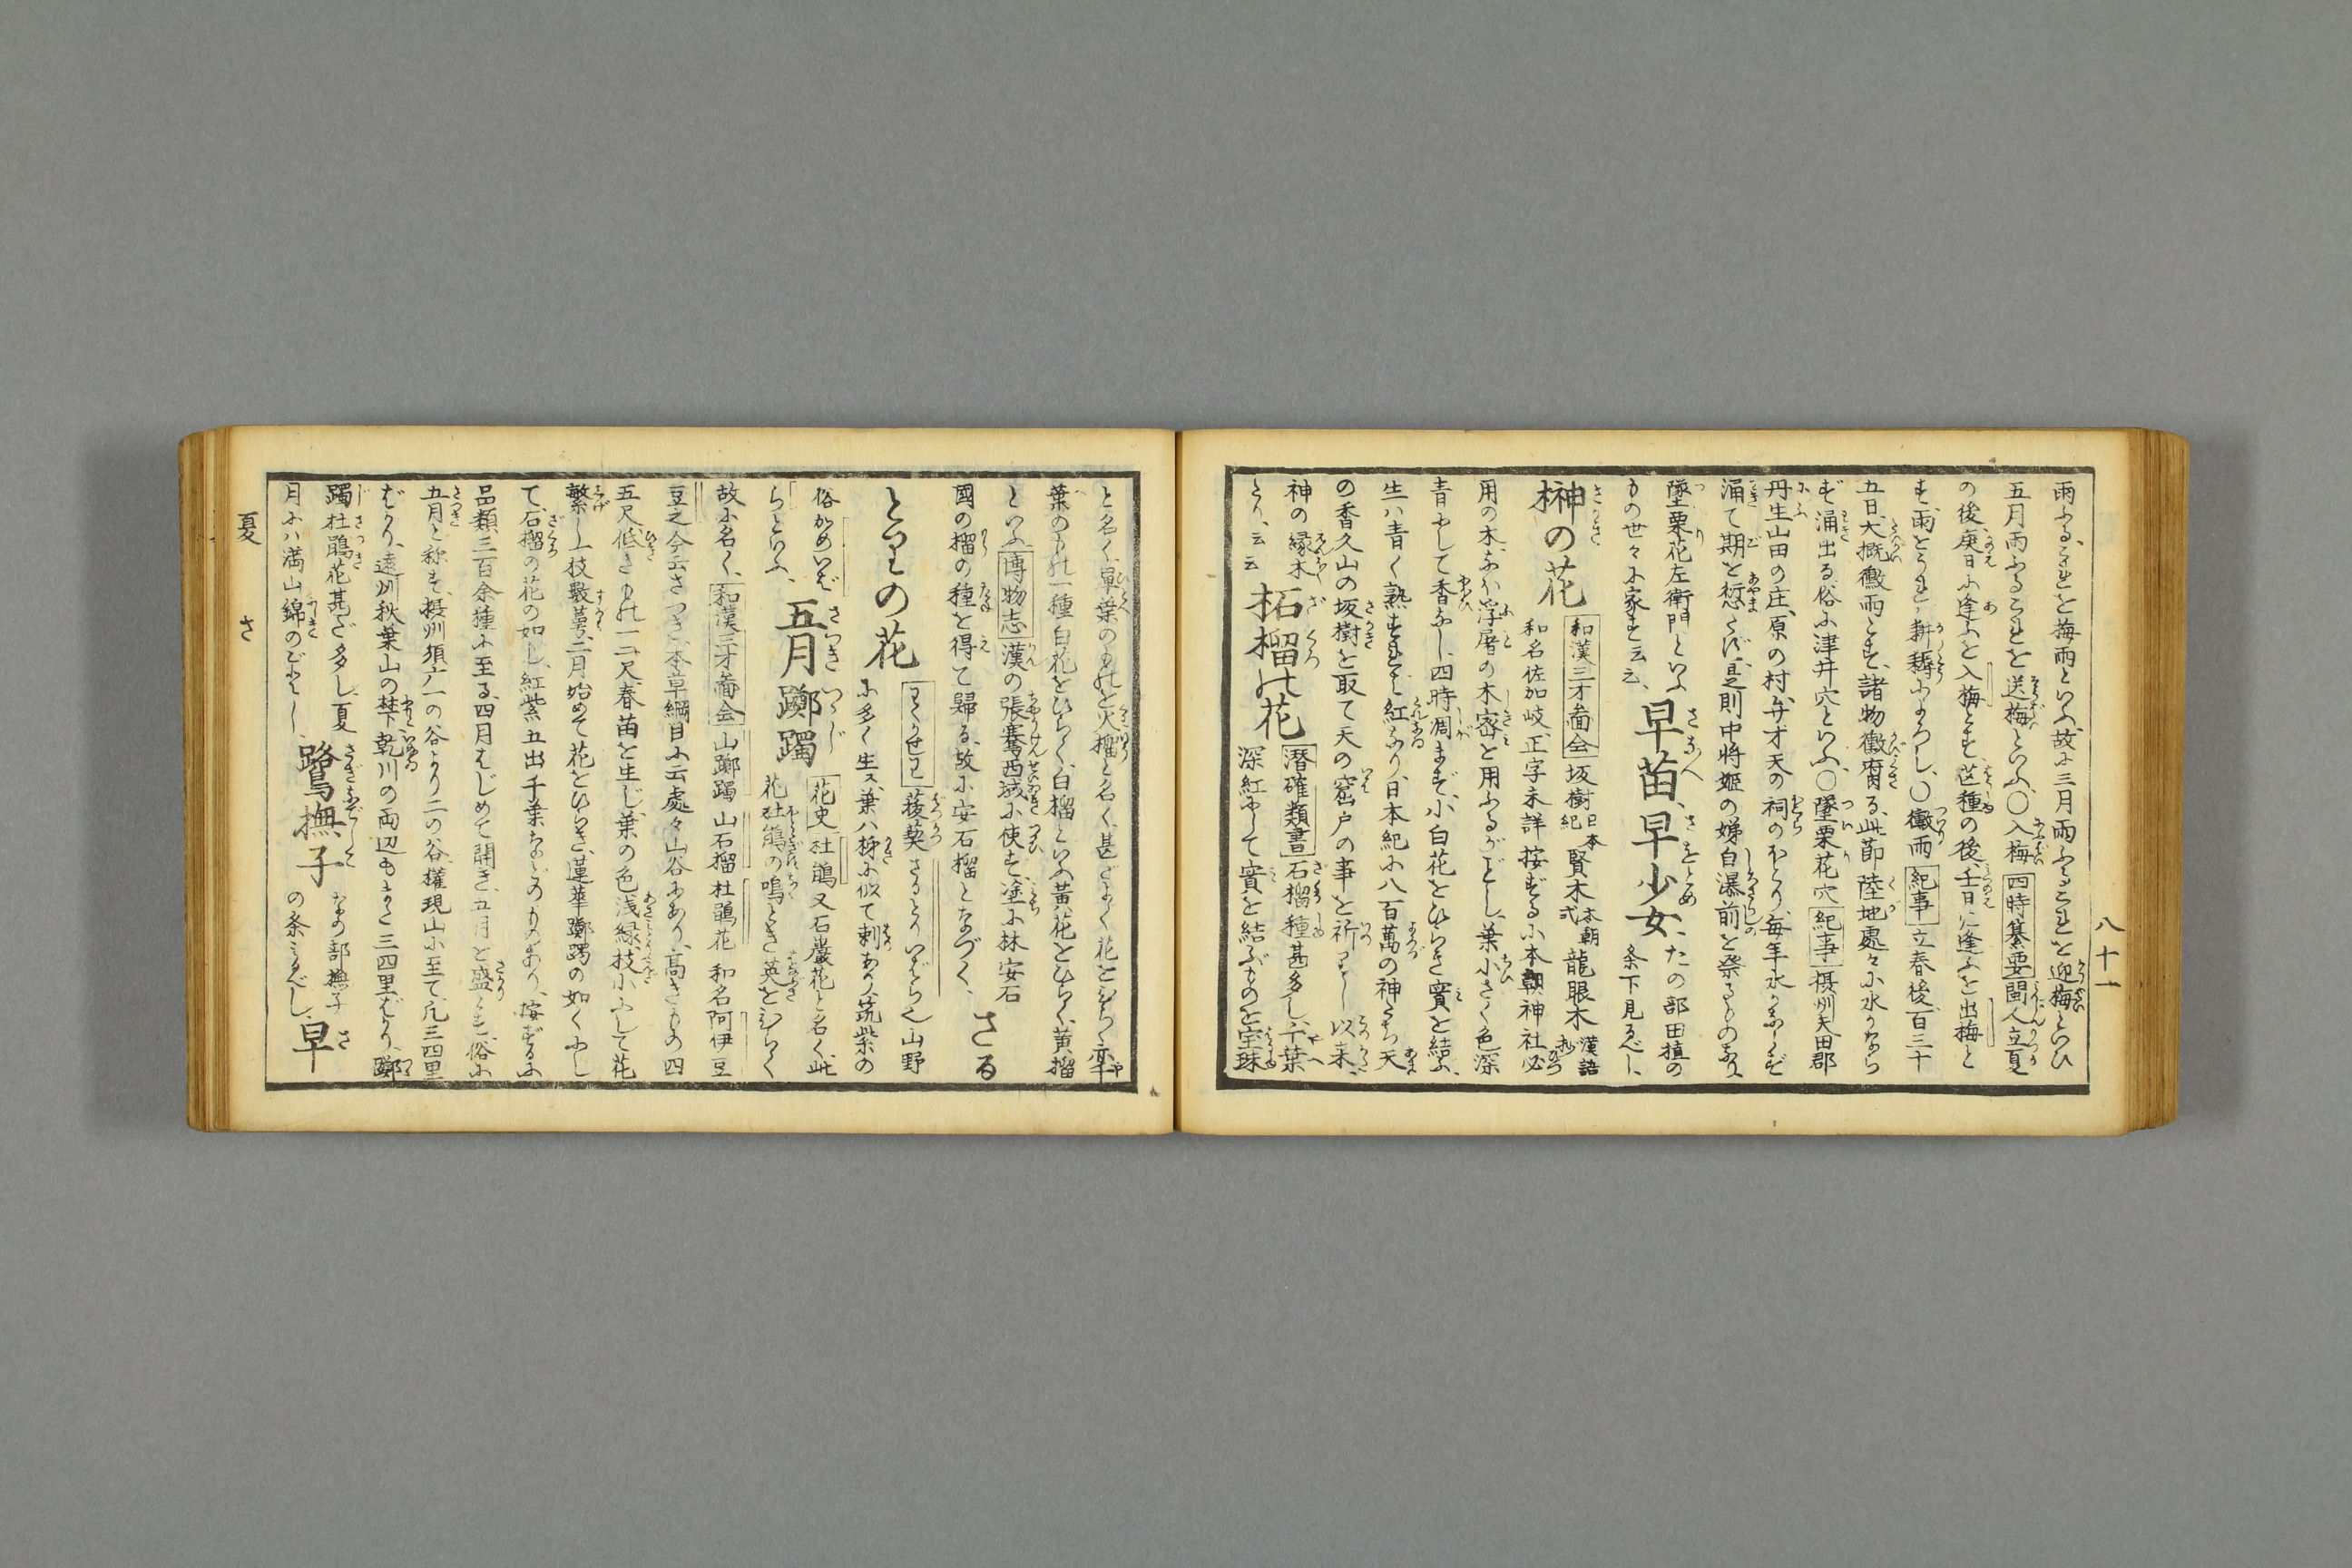 八十一
雨ふるこれを梅雨といふ、故に三月雨ふるこれを迎梅といひ
五月雨ふるこれを送梅といふ、〇入梅 四時纂要 閩人立夏
の後、庚日に逢ふを入梅とす、芒種の後、壬日に逢ふを出梅と
す、雨とうれ耕耨によろし、〇黴雨 紀事 立春後、百三十
五日、大概黴雨とす、諸物黴腐る、此節陸地處々に水かなら
ず涌出る、俗に津井穴といふ、〇墜栗花穴 紀事 摂州矢田郡
丹生山田の庄、原の村、弁才天の祠のかたはら、毎年水かならず
涌て期を愆たず、是則中将姫の娣白瀑前を祭るものなり、
墜栗花左衛門といふ
もの世々に家す云云、 早苗、早少女、 たの部田植の 条下見るべし、
榊の花 和漢三才圖会 坂樹 日本紀 賢木 本朝式 龍眼木 漢語抄
和名佐加岐、正字未詳、按ずるに本朝神社必
用の木、なほ浮屠の木密を用ふるがごとし、葉小さく色深
青にして香なし、四時凋まず、小白花をひらき實を結ぶ、
生は青く熟すれば紅なり、日本紀に八百萬の神たち天
の香久山の坂樹を取て天の窟戸の事を祈りしし以来、
神の縁木
とり、云云 柘榴の花 潜確類書 石榴種甚多し、千葉
深紅にして實を結ぶものを宝珠
と名く、單葉のものを火榴と名く、甚だよく花をひらく、
葉のもの一種白花をひらく、白榴といふ、黄花をひらく、黄榴
といふ 博物志 漢の張騫西域に使す、塗に林安石
國の榴の種を得て歸る、故に安石榴となづく、 さる
とりの花 わくかせわ 菝葜 さるとりいばら也、山野
に多く生ズ、葉ハ柳に似て刺あり、筑紫の
俗かめいば
らといふ、 五月躑躅 花史 杜鵑又石巌花と名く、此
花杜鵑の鳴とき英をひらく
故に名く、 和漢三才圖会 山躑躅 山石榴 杜鵑花 和名阿伊豆
豆之、今云さつき、本草綱目に云處々山谷にあり、高きもの四
五尺、低きもの一二尺、春苗を生じ、葉の色浅緑、枝小にして花
繁し、一枝數萼、二月始めて花をひらき、蓮華躑躅の如くにし
て、石榴の花の如し、紅紫五出千葉などのものあり、按ずるに
品類三百余種に至る、四月はじめて開き、五月を盛とす、俗に
五月と称す、摂州須广一の谷より二の谷、權現山に至て、凡三四里
ばかり、遠州秋葉山の梺下乾川の両辺もまた三四里ばかり、躑
躅杜鵑花甚だ多し、夏
月には満山綿のごとし、 鷺撫子 なの部撫子 の条にみるべし、 早
夏 さ